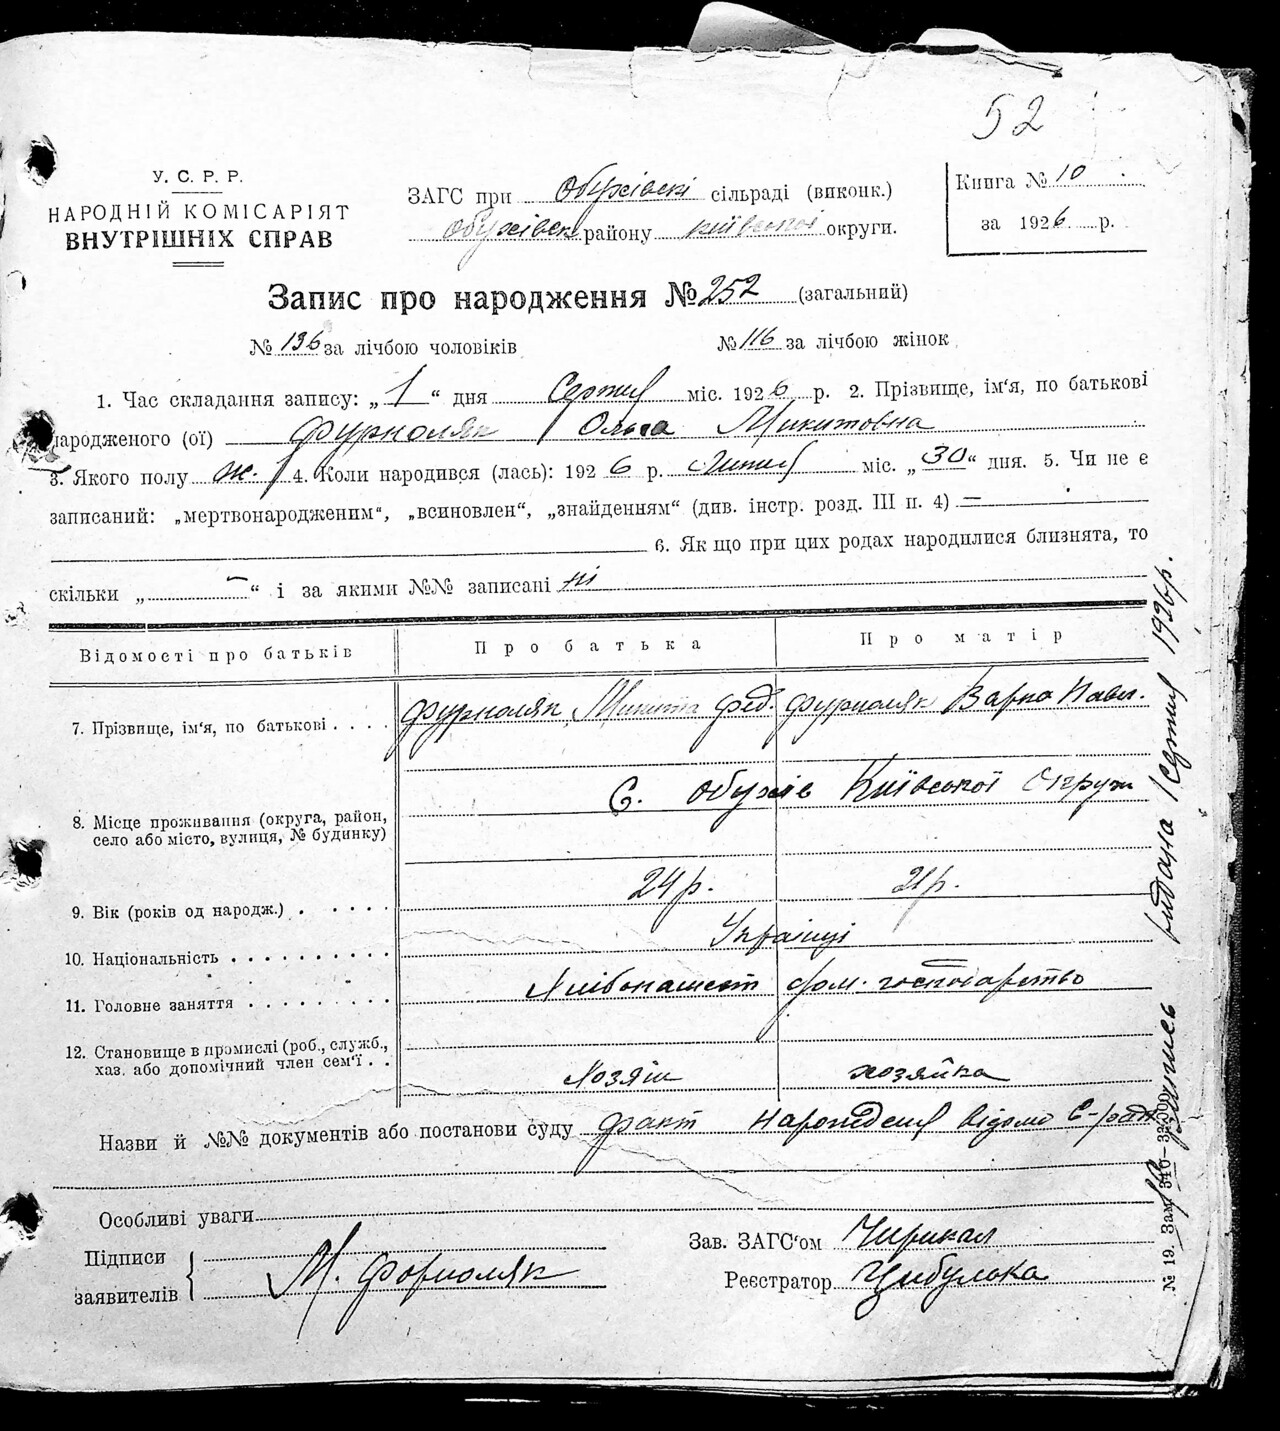 52
У. С. Р. Р.
НАРОДНІЙ КОМІСАРІЯТ
ВНУТРІШНІХ СПРАВ
ЗАГС при Обухівскі сільраді (виконк.)
Обухівск району київської округи.
Книга № 10
за 1926 р.
Запис про народження № 252 (загальний)
№ 136 за лічбою чоловіків № 116 за лічбою жінок
1. Час складання запису: „1“ дня Серпня міс. 1926 р. 2. Прізвище, ім'я, по батькові
народженого (ої) Фурноляк Ольга Микитовна
3. Якого полу ж. 4. Коли народився (лась): 1926 р. Липня міс. „30“ дня. 5. Чи не є
записаний: „мертвонародженим“, „всиновлен“, „знайденням“ (див. інстр. розд. III п. 4) =
6. Як що при цих родах народилися близнята, то
скільки „ – “ і за якими №№ записані ні
Відомості про батьків Про батька Про матір
7. Прізвище, ім'я, по батькові . . . . Фурноляк Микита Фед. Фурноляк Варка Павл.
С. Обухів Київської Округи
8. Місце проживання (округа, район,
село або місто, вулиця, № будинку)
9. Вік (років од народж.) . . . . . 24 р. 21 р.
10. Національність . . . . . . . . . . Українці
11. Головне заняття . . . . . . . . . Хлібопашест дом. господарство
12. Становище в промислі (роб., служб.,
хаз. або допомічний член сем'ї . . Хозяін хозяйка
Назви й №№ документів або постанови суду факт нарождения відомо С-раді
Особливі уваги
Підписи
заявителів М. Форноляк
Зав. ЗАГС'ом Чирикал
Реєстратор Цибулька
№ 19. Зам. 346—32.000
видана 1 серпня 1926 р.